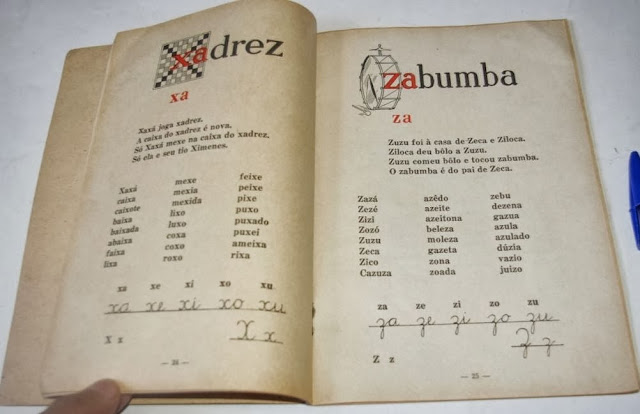 xadrez
xa
Xaxá joga xadrez.
A caixa do xadrez é nova.
Só Xaxá mexe na caixa do xadrez.
Só ela e seu tio Ximenes.
Xaxá mexe feixe
caixa mexia peixe
caixote mexida pixe
baixa lixo puxo
baixada luxo puxado
abaixa coxa puxei
faixa coxo ameixa
lixa roxo rixa
xa xe xi xo xu
xa xe xi xo xu
X x
X z
— 24 —
zabumba
za
Zuzu foi à casa de Zeca e Ziloca.
Ziloca deu bôlo a Zuzu.
Zuzu comeu bôlo e tocou zabumba.
O zabumba é do pai de Zeca.
Zazá azêdo zebu
Zezé azeite dezena
Zizi azeitona gazua
Zozó beleza azula
Zuzu moleza azulado
Zeca gazeta dúzia
Zico zona vazio
Cazuza zoada juizo
za ze zi zo zu
za ze zi zo zu
Z z
Z z
— 25 —